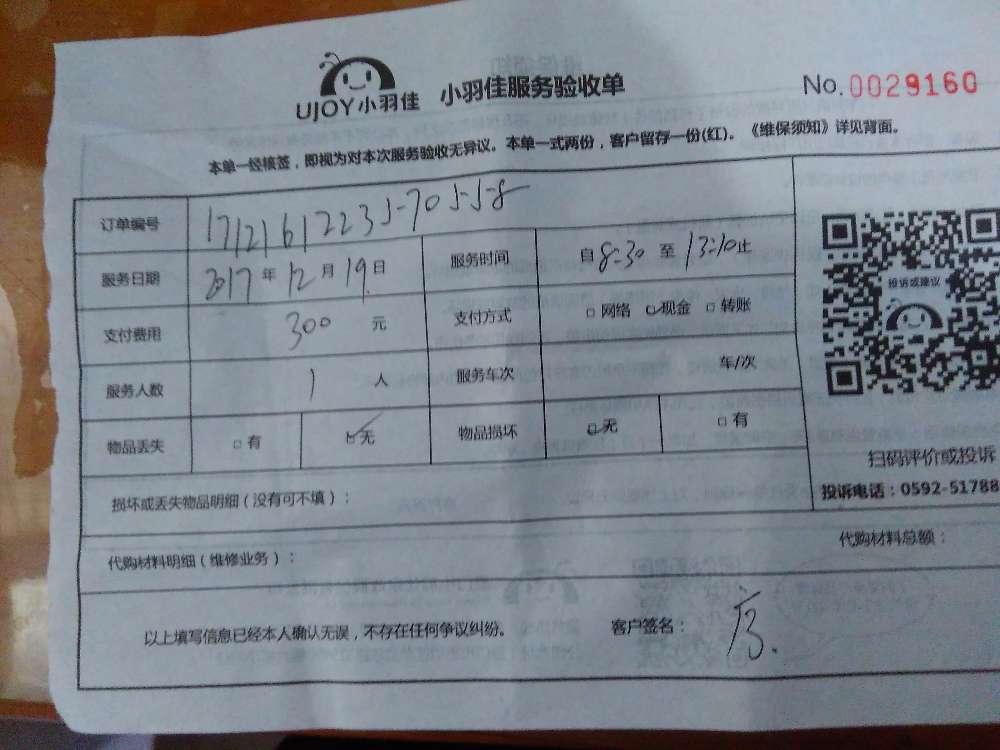 UJOY小羽佳 小羽佳服务验收单 No.0029160
本单一经核签，即视为对本次服务验收无异议。本单一式两份，客户留存一份(红)。《维保须知》详见背面。
订单编号 1712161223570558
服务日期 2017年12月19日 服务时间 自8:30至13:10止
投诉或建议
支付费用 300 元 支付方式 □网络 ☑现金 □转账
服务人数 1 人 服务车次 车/次
物品丢失 □有 ☑无 物品损坏 ☑无 □有
扫码评价或投诉
投诉电话：0592-51788
损坏或丢失物品明细（没有可不填）：
代购材料明细（维修业务）： 代购材料总额：
以上填写信息已经本人确认无误，不存在任何争议纠纷。 客户签名：